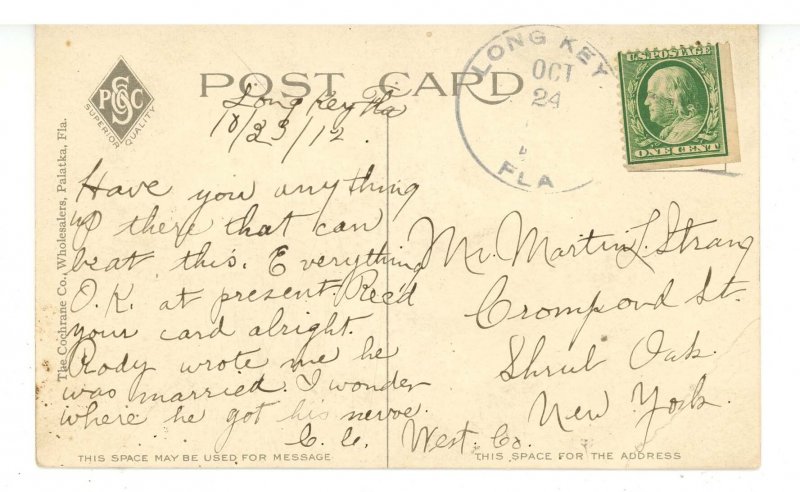 POST CARD
PSCC
SUPERIOR QUALITY
The Cochrane Co., Wholesalers, Palatka, Fla.
Long Key Fla
10/23/12
Have you anything
up there that can
beat this. Everything
O.K. at present. Rec'd
your card alright.
Rody wrote me he
was married. I wonder
where he got his nerve.
C. C.
THIS SPACE MAY BE USED FOR MESSAGE
LONG KEY
OCT
24
FLA
U.S. POSTAGE
ONE CENT
Mr. Martin L. Strang
Crompond St.
Shrub Oak.
New York.
West. Co.
THIS SPACE FOR THE ADDRESS